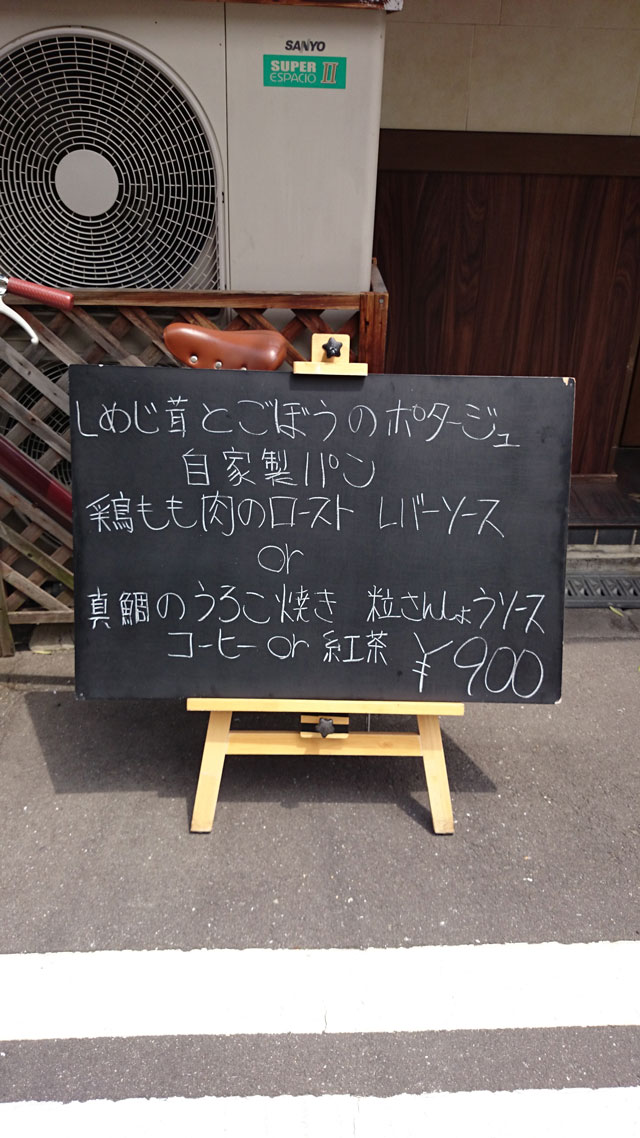 SANYO
SUPER
ESPACIO II
しめじ茸とごぼうのポタージュ
自家製パン
鶏もも肉のロースト レバーソース
or
真鯛のうろこ焼き 粒さんしょうソース
コーヒー or 紅茶 ¥900